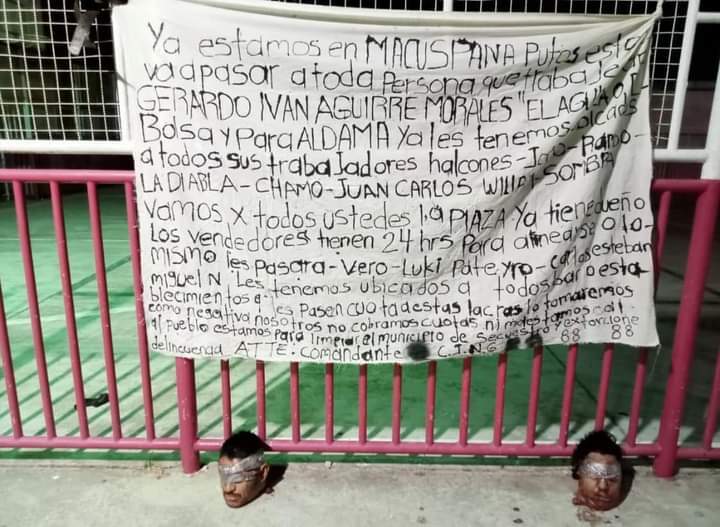 Ya estamos en MACUSPANA Putos esto
va a pasar a toda Persona que trabaje
GERARDO IVAN AGUIRRE MORALES "EL AGUA O EL
Bolsa y Para ALDAMA Ya les tenemos
a todos sus trabajadores halcones - Jaro - Ramo -
LA DIABLA - CHAMO - JUAN CARLOS SOMBRA
Vamos x todos ustedes la PLAZA Ya tiene dueño
Los vendedores tienen 24 hrs Para alinearse O lo
mismo les Pasara - Vero - Luki Pate yro - Carlos esteban
miguel N Les tenemos ubicados a todos bar o esta
blecimientos q les Pasen cuota a estas lacras lo tomaremos
como negativa nosotros no cobramos cuotas ni molestamos
al pueblo estamos para limpiar el municipio de secuestro y extorcione
delincuencia ATTE: Comandante C.J.N.G 88 88